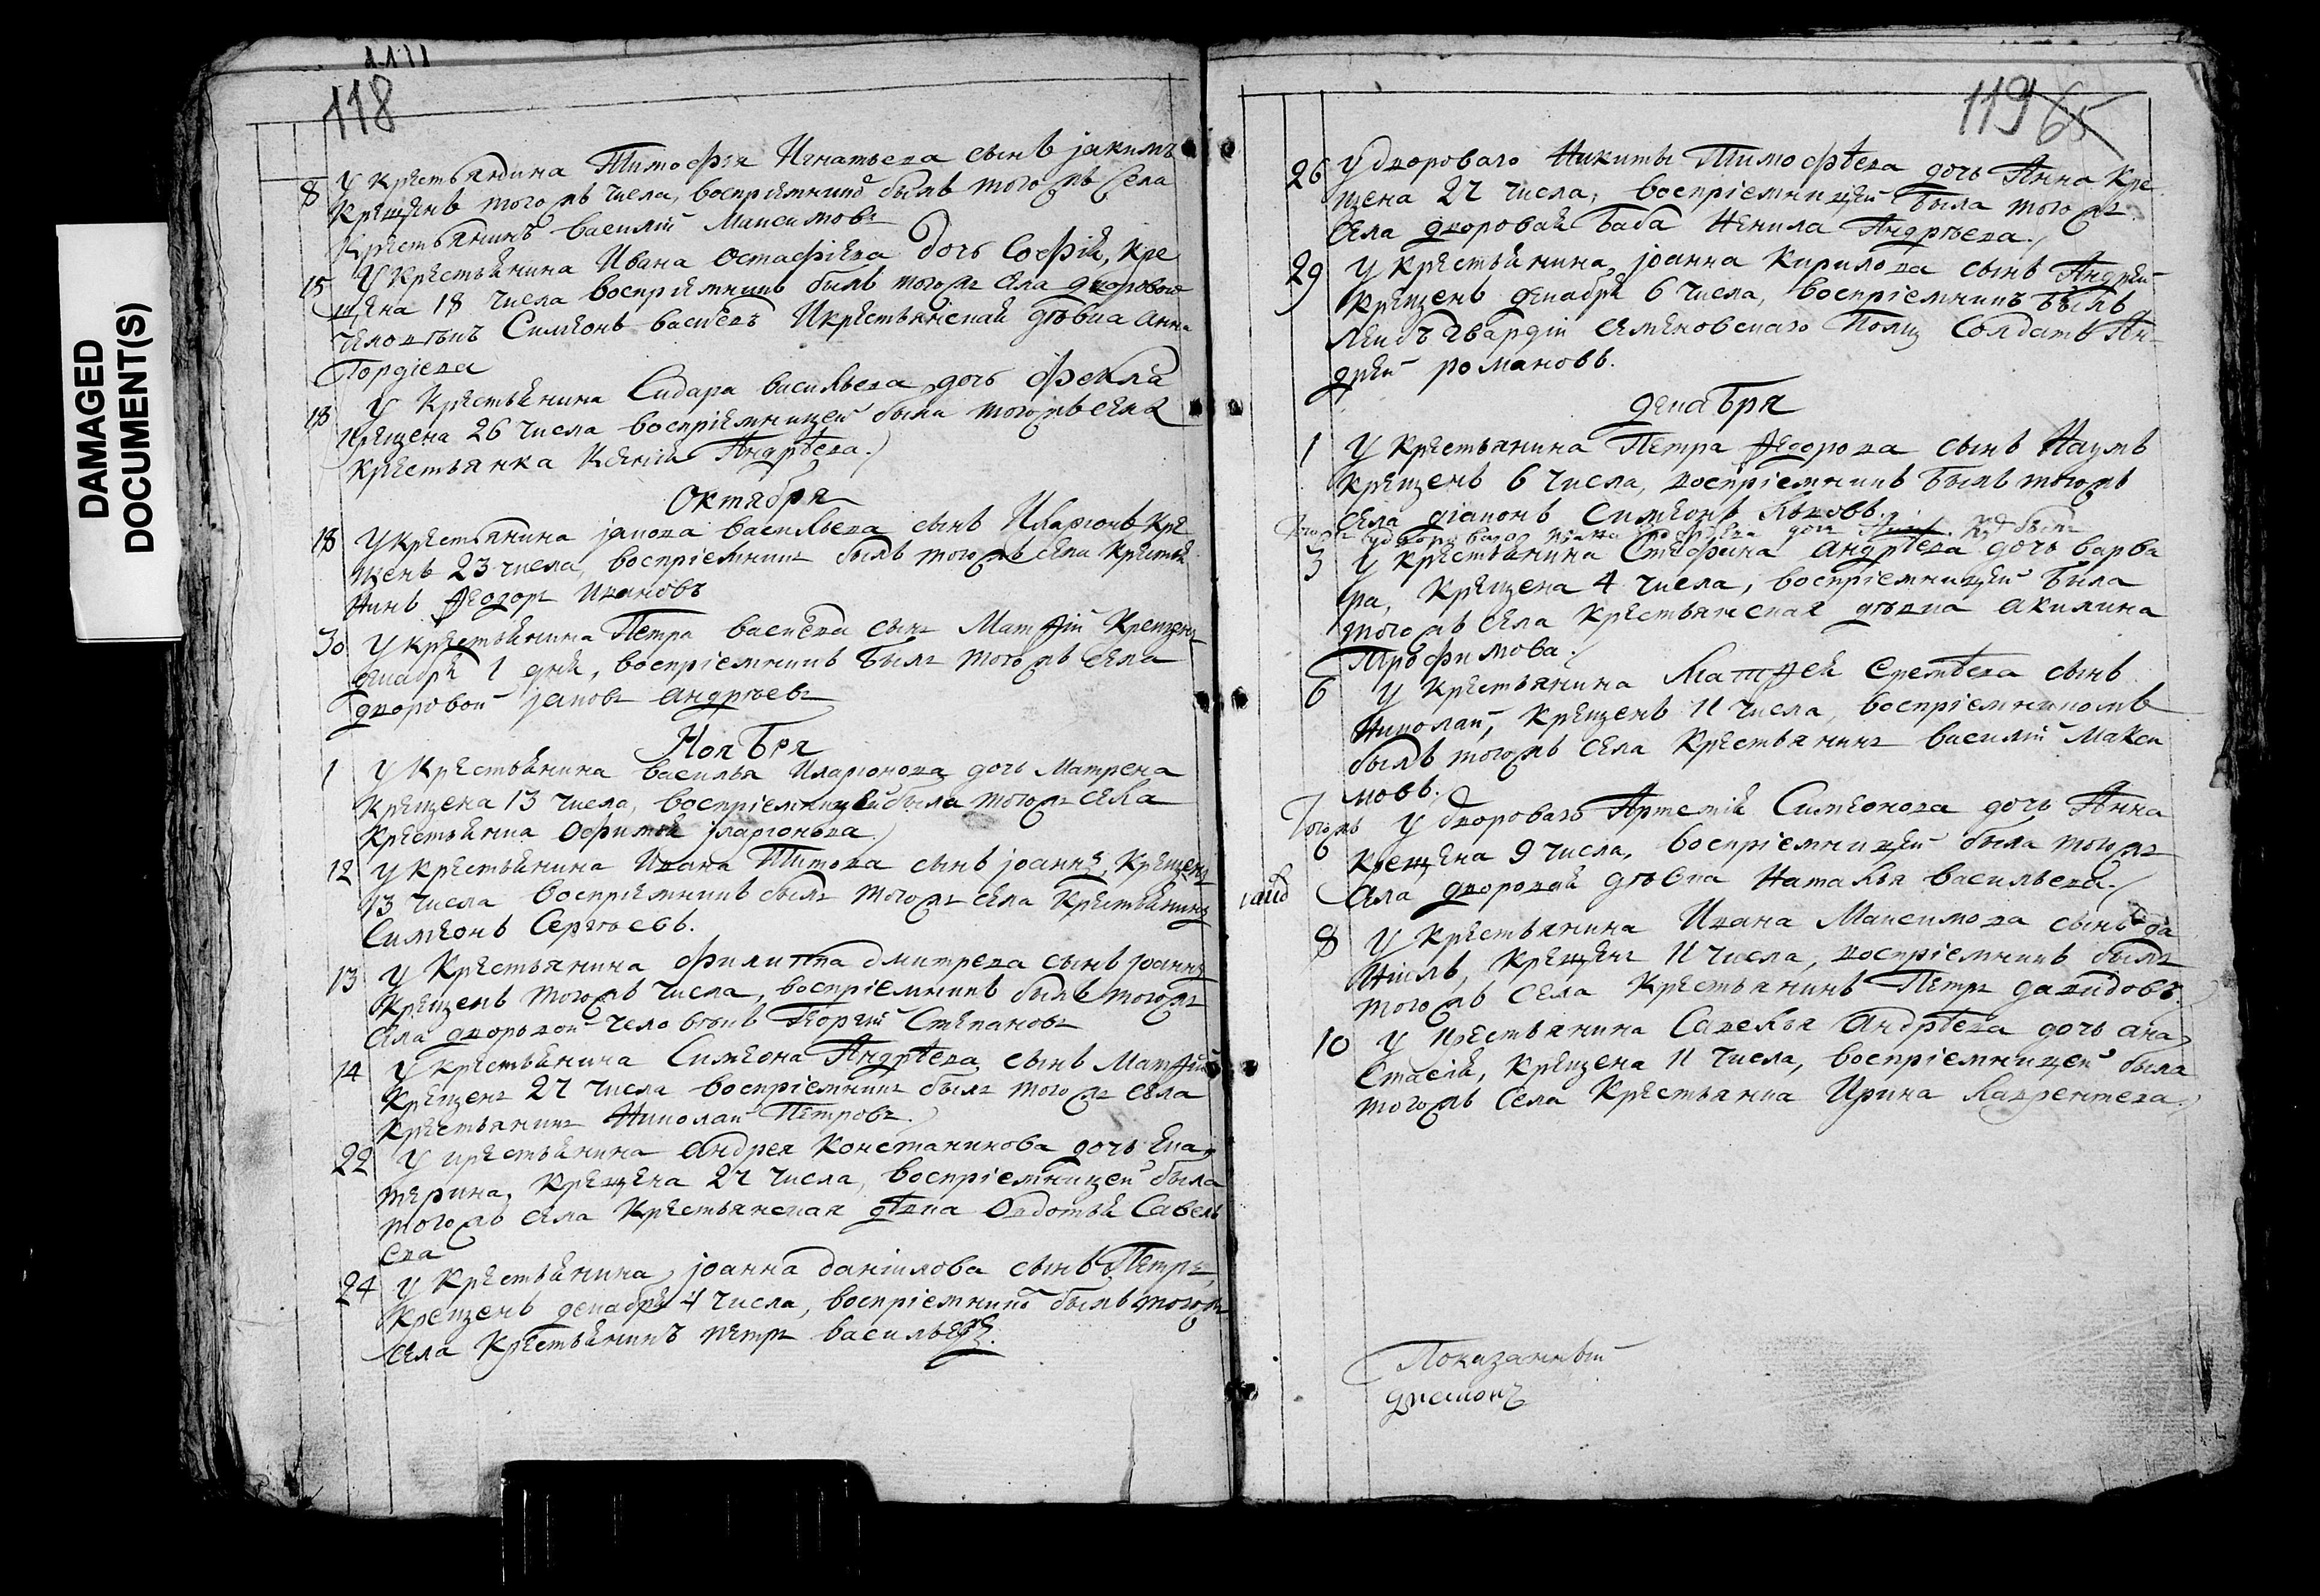 DAMAGED
DOCUMENT(S)
118
8 У крестьянина Тимофѣя Игнатьева сынъ јакимъ
крещенъ тогожъ числа, воспріемникъ былъ тогожъ села
крестьянинъ василій Максимовъ
15 У крестьянина Ивана Остафіева дочь Софія, кре
щена 18 числа воспріемникъ былъ тогожъ села дворового
человѣкъ Симеонъ васи́евъ И крестьянская дѣвка Анна
Гордіева
18 У крестьянина Сидара васильева дочь Фекла
крещена 26 числа воспріемницей была тогожъ села
крестьянка Ксенія Андрѣева.
Октября
18 У крестьянина јакова васильева сынъ Иларіонъ кре
щенъ 23 числа, воспріемникъ былъ тогожъ села крестья
нинъ Ѳедоръ Ивановъ
30 У крестьянина Петра васи́ева сынъ Матѳій крещенъ
декабря 1 дня, воспріемникъ былъ тогожъ села
дворовой јаковъ андрѣевъ
Ноября
1 У крестьянина василья Иларіонова дочь Матрена
крещена 13 числа, воспріемницей была тогожъ села
крестьянка Офимья јларіонова
12 У крестьянина Ивана Титова сынъ јоаннъ, крещенъ
13 числа воспріемникъ былъ тогожъ села крестьянинъ
Симеонъ Сергѣевъ.
13 У крестьянина филиппа дмитрева сынъ јоаннъ
крещенъ тогожъ числа, воспріемникъ былъ тогожъ
села дворовой человѣкъ Георгій Степановъ
14 У крестьянина Симеона Андрѣева сынъ Матѳій
крещенъ 27 числа воспріемникъ былъ тогожъ села
крестьянинъ Николай Петровъ.
22 У крестьянина андрея Констанинова дочь Ека
терина, крещена 27 числа, воспріемницей была
тогожъ села крестьянская дѣвка Овдотья Савель
ева
24 У крестьянина јоанна даніилова сынъ Петръ,
крещенъ декабря 4 числа, воспріемникъ былъ тогожъ
села крестьянинъ петръ васильевъ.
119 65
26 У двороваго Никиты Тимофѣева дочь Анна кре
щена 27 числа, воспріемницей была тогожъ
села дворовая баба Ненила Андрѣева.
29 У крестьянина јоанна Кирилова сынъ Андрей
крещенъ декабря 6 числа, воспріемникъ былъ
Леибъ Гвардіи семеновскаго полку Солдатъ Ан
дрей романовъ.
декабря
1 У крестьянина Петра Ѳедорова сынъ Наумъ
крещенъ 6 числа, воспріемникъ былъ тогожъ
села діаконъ Симеонъ Яковъ
3 У крестьянина Стефана андрѣева дочь варва
ра, крещена 4 числа, воспріемницей была
тогожъ села крестьянская дѣвка акилина
Трофимова.
6 У крестьянина Матѳея еремѣева сынъ
Николай, крещенъ 11 числа, воспріемникомъ
былъ тогожъ села крестьянинъ василій макси
мовъ.
тогожъ 6 У двороваго Артемія Симеонова дочь Анна
крещена 9 числа, воспріемницей была тогожъ
села дворовая дѣвка Наталья васильева.
8 У крестьянина Ивана Максимова сынъ да
ніилъ, крещенъ 11 числа, воспріемникъ былъ
тогожъ села крестьянинъ Петръ давидовъ
10 У крестьянина Савелья андрѣева дочь ана
стасія, крещена 11 числа, воспріемницей была
тогожъ села крестьянка Ирина Лаврентева.
Показанный